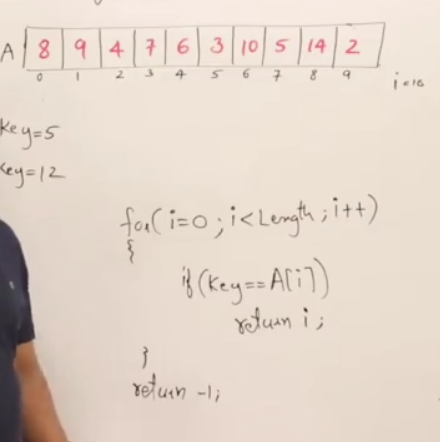 A 8 9 4 7 6 3 10 5 14 2
0 1 2 3 4 5 6 7 8 9
i=10
Key=5
Key=12
for(i=0; i<Length; i++)
{
if(Key==A[i])
return i;
}
return -1;